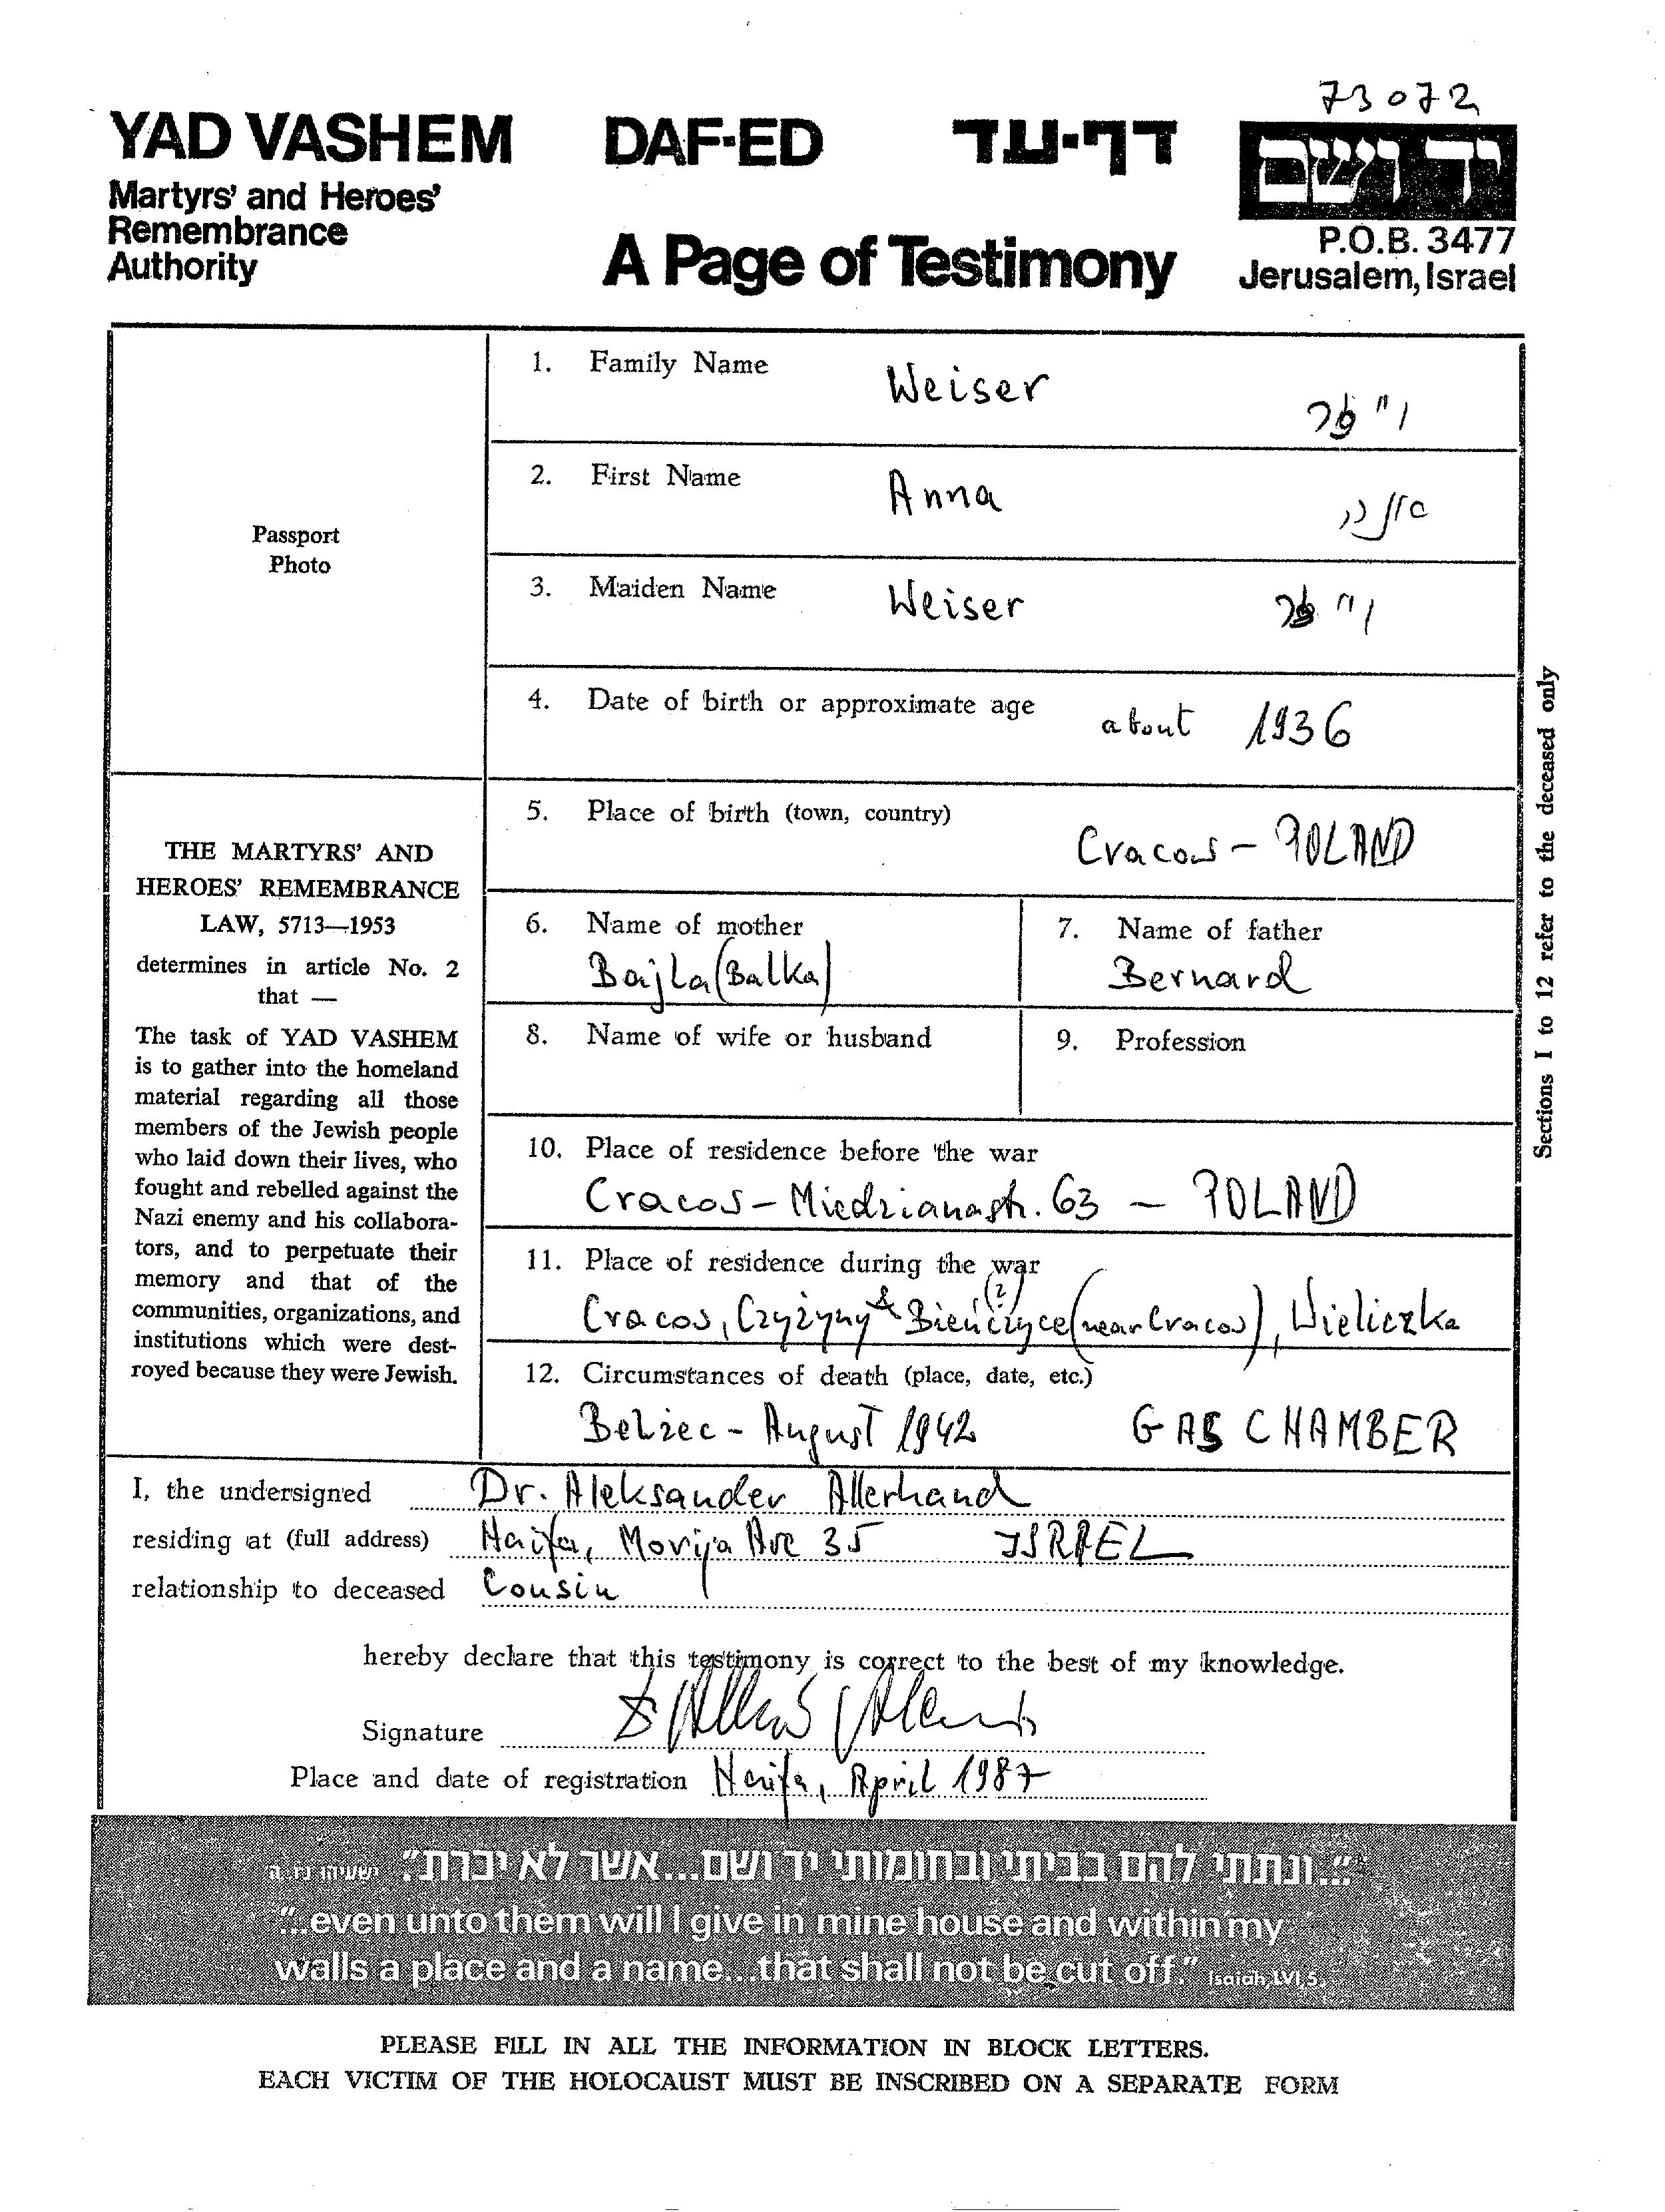 73072
YAD VASHEM DAF-ED דף-עד יד ושם
Martyrs' and Heroes'
Remembrance
Authority
A Page of Testimony
P.O.B. 3477
Jerusalem, Israel
Passport
Photo
1. Family Name Weiser וייזר
2. First Name Anna אננה
3. Maiden Name Weiser וייזר
4. Date of birth or approximate age about 1936
5. Place of birth (town, country) Cracow - POLAND
6. Name of mother Bajla (Balka)
7. Name of father Bernard
8. Name of wife or husband
9. Profession
10. Place of residence before the war
Cracow - Miedzianastr. 63 - POLAND
11. Place of residence during the war
Cracow, Czyżyny & Bieńczyce (?) (near Cracow), Wieliczka
12. Circumstances of death (place, date, etc.)
Belzec - August 1942 GAS CHAMBER
Sections 1 to 12 refer to the deceased only
THE MARTYRS' AND
HEROES' REMEMBRANCE
LAW, 5713—1953
determines in article No. 2
that —
The task of YAD VASHEM
is to gather into the homeland
material regarding all those
members of the Jewish people
who laid down their lives, who
fought and rebelled against the
Nazi enemy and his collabora-
tors, and to perpetuate their
memory and that of the
communities, organizations, and
institutions which were dest-
royed because they were Jewish.
I, the undersigned Dr. Aleksander Allerhand
residing at (full address) Haifa, Morija Ave 35 ISRAEL
relationship to deceased Cousin
hereby declare that this testimony is correct to the best of my knowledge.
Signature
Place and date of registration Haifa, April 1987
"...ונתתי להם בביתי ובחומותי יד ושם...אשר לא יכרת." ישעיהו נו, ה
"...even unto them will I give in mine house and within my
walls a place and a name...that shall not be cut off." Isaiah, LVI, 5.
PLEASE FILL IN ALL THE INFORMATION IN BLOCK LETTERS.
EACH VICTIM OF THE HOLOCAUST MUST BE INSCRIBED ON A SEPARATE FORM